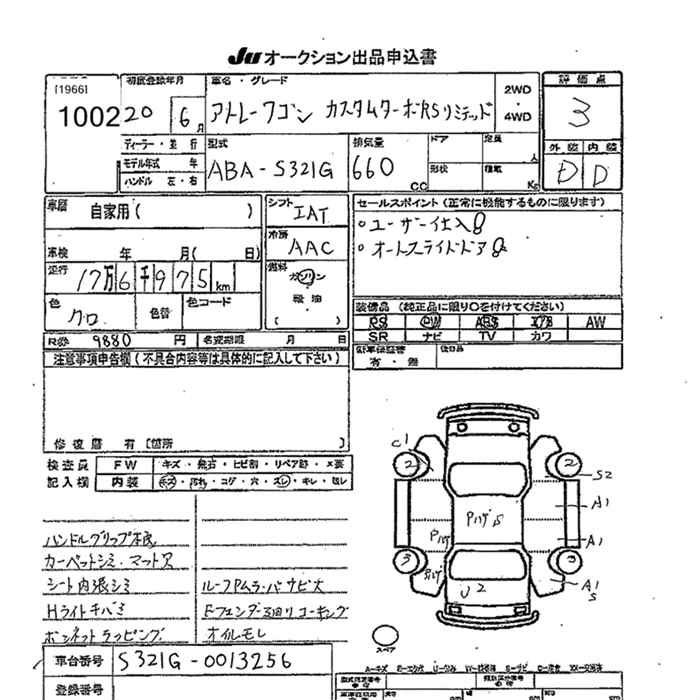 JU オークション出品申込書
[1966]
1002
初度登録年月
20 6月
車名・グレード
アトレーワゴン カスタムターボRSリミテッド
2WD
・
4WD
評価点
3
外装 内装
D D
ディーラー・並行
モデル年式 年
ハンドル 左・右
型式
ABA-S321G
排気量
660 CC
ドア
形状
定員 人
積載 Kg
車歴 自家用( )
車検 年 月( 日)
走行 17万6千975km
色 クロ 色替 色コード
シフト IAT
冷房 AAC
燃料 ガソリン
軽油
( )
セールスポイント(正常に機能するものに限ります)
○ユーザー仕入
○オートスライドドア
装備品(純正品に限り○を付けてください)
PS PW ABS エアB AW
SR ナビ TV カワ
R券 9880 円 名変期限 月 日
新車保証書 有・無
注意事項申告欄(不具合内容等は具体的に記入して下さい)
修復歴 有[箇所 ]
検査員記入欄
FW キズ・飛石・ヒビ割・リペア跡・×要
内装 キズ・汚れ・コゲ・穴・スレ・キレ・
カーペットシミ・マット欠
シート内張シミ
Hライトキバミ
ボンネットラッピング
オイルモレ
C1
2
2
S2
A1
A1
A1
S
3
3
U2
スペア
車台番号 S321G-0013256
登録番号